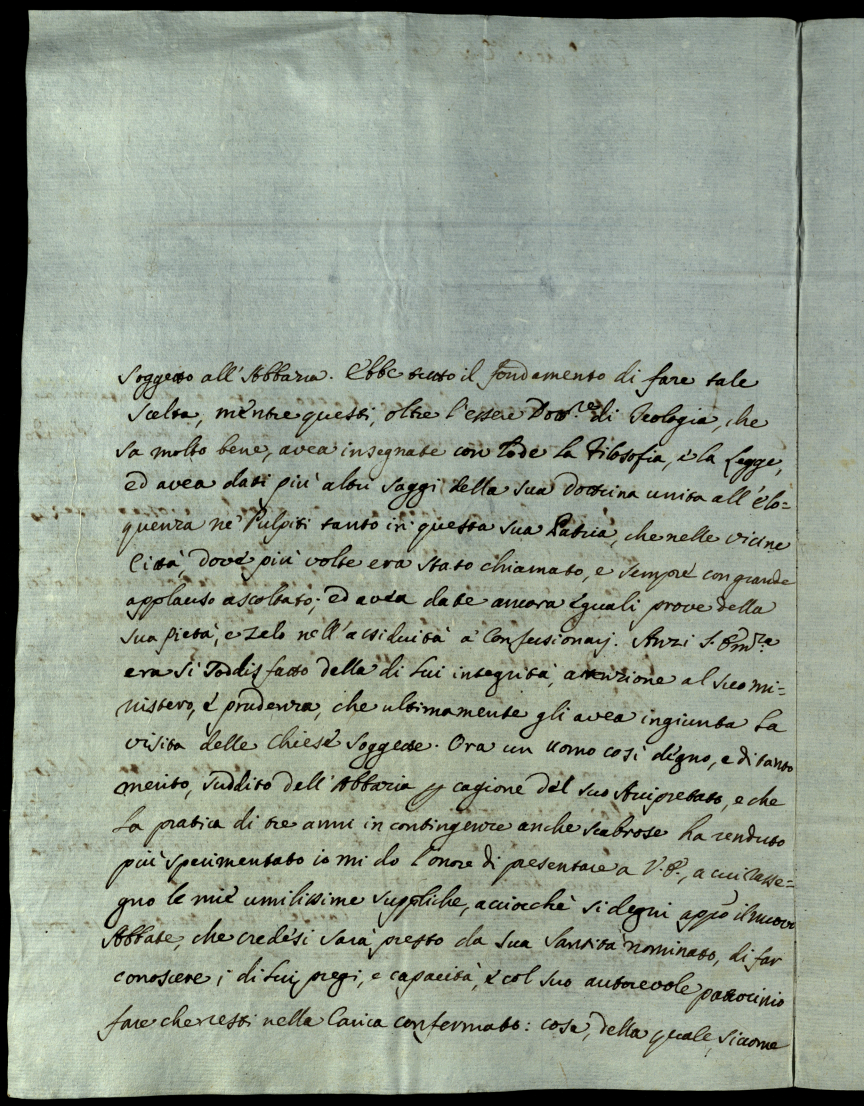 Soggetto all'Abbazia. Ebbe tutto il fondamento di fare tale
scelta, mentre questi, oltre l'essere Dott.re di Teologia, che
sa molto bene, avea insegnate con lode la Filosofia, e la Legge,
ed avea dati più altri saggi della sua dottrina unita all'elo=
quenza ne' Pulpiti tanto in questa sua Patria, che nelle vicine
Città, dove più volte era stato chiamato, e sempre con grande
applauso ascoltato; ed avea date ancora eguali prove della
sua pietà, e zelo nell'assiduità a' Confessionarj. Anzi S. Em.za
era sì soddisfatto della di lui integrità, attenzione al suo mi=
nistero, e prudenza, che ultimamente gli avea ingiunta la
visita delle Chiese soggette. Ora un uomo così degno, e di tanto
merito, suddito dell'Abbazia p cagione del suo Arcipretato, e che
la pratica di tre anni in contingenze anche scabrose ha renduto
più sperimentato io mi do l'onore di presentare a V. E., a cui rasse=
gno le mie umilissime suppliche, acciocchè si degni appo il nuovo
Abbate, che credesi sarà presto da Sua Santità nominato, di far
conoscere i di lui pregi, e capacità, e col suo autorevole patrocinio
fare che resti nella Carica confermato: cosa, della quale, siccome